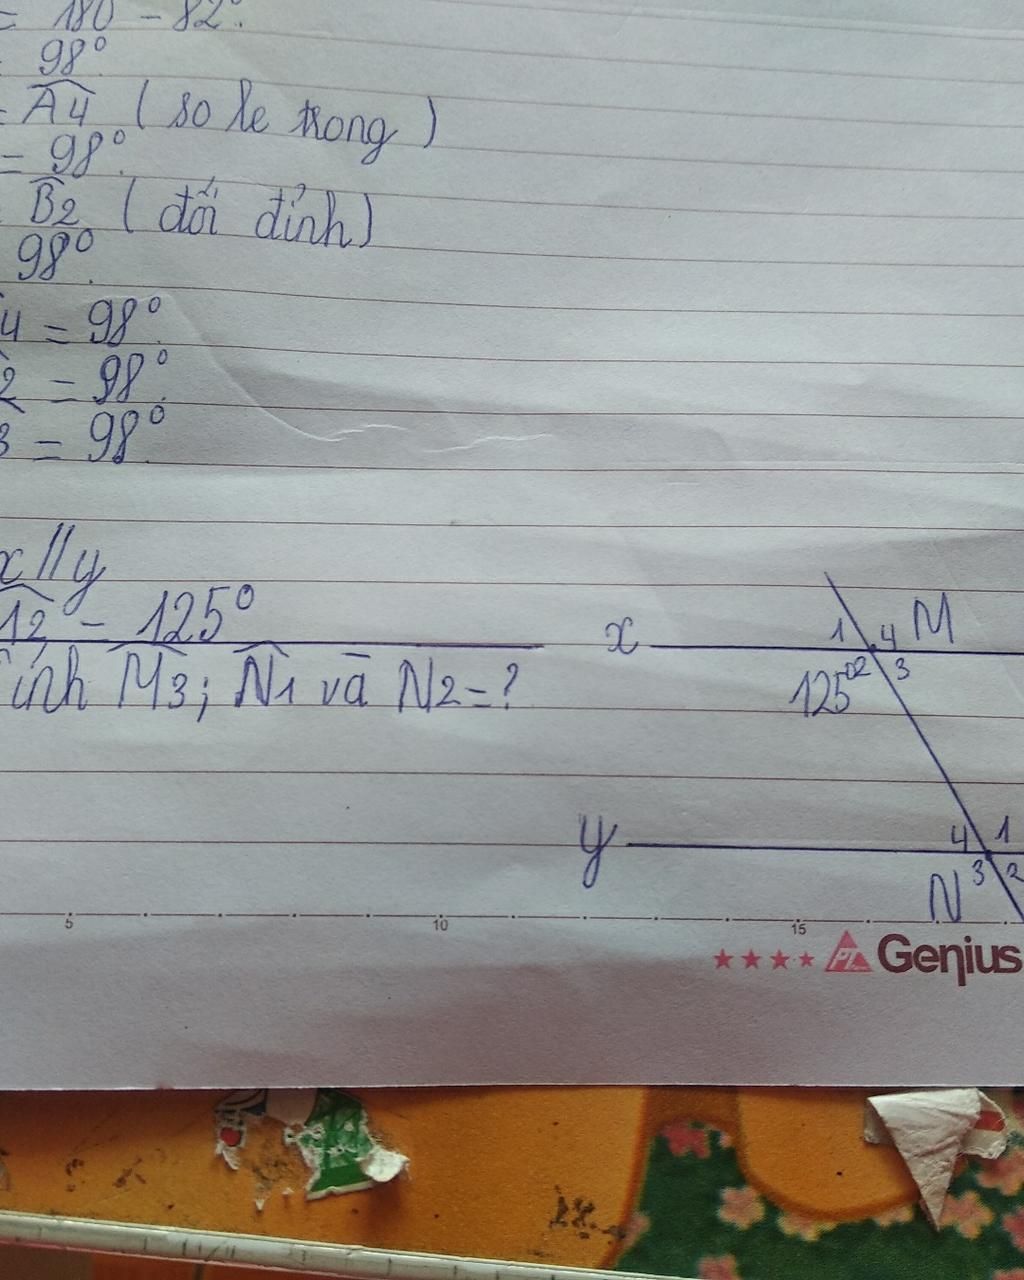 = 180 - 82°.
= 98°.
= A4 (so le trong)
= 98°.
B2 (đối đỉnh)
98°.
4 = 98°.
2 = 98°.
3 = 98°.
x // y
12 = 125°
Tính M3; N1 và N2 = ?
x
1 4 M
125° 2 3
y
4 1
N 3 2
5 10 15
PT Genius